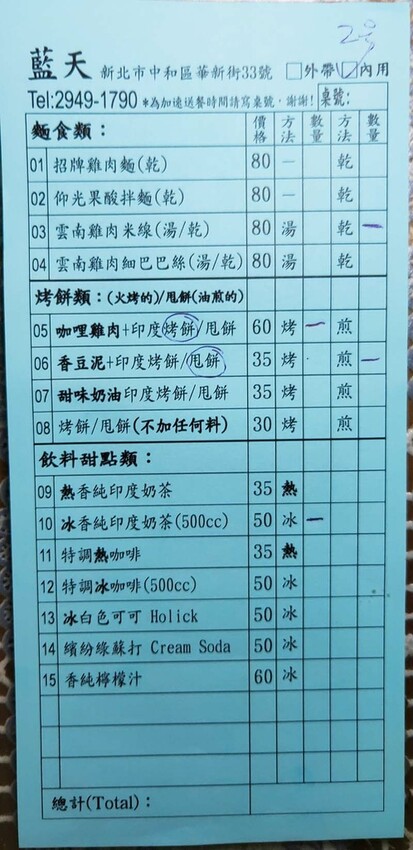 2号
藍天 新北市中和區華新街33號 □外帶 ☑內用
Tel:2949-1790 *為加速送餐時間請寫桌號,謝謝! 桌號:
麵食類: 價格 方法 數量 方法 數量
01 招牌雞肉麵(乾) 80 — 乾
02 仰光果酸拌麵(乾) 80 — 乾
03 雲南雞肉米線(湯/乾) 80 湯 乾 一
04 雲南雞肉細巴巴絲(湯/乾) 80 湯 乾
烤餅類:(火烤的)/甩餅(油煎的)
05 咖哩雞肉+印度烤餅/甩餅 60 烤 一 煎
06 香豆泥+印度烤餅/甩餅 35 烤 煎 一
07 甜味奶油印度烤餅/甩餅 35 烤 煎
08 烤餅/甩餅(不加任何料) 30 烤 煎
飲料甜點類:
09 熱香純印度奶茶 35 熱
10 冰香純印度奶茶(500cc) 50 冰 一
11 特調熱咖啡 35 熱
12 特調冰咖啡(500cc) 50 冰
13 冰白色可可 Holick 50 冰
14 繽紛綠蘇打 Cream Soda 50 冰
15 香純檸檬汁 60 冰
總計(Total):